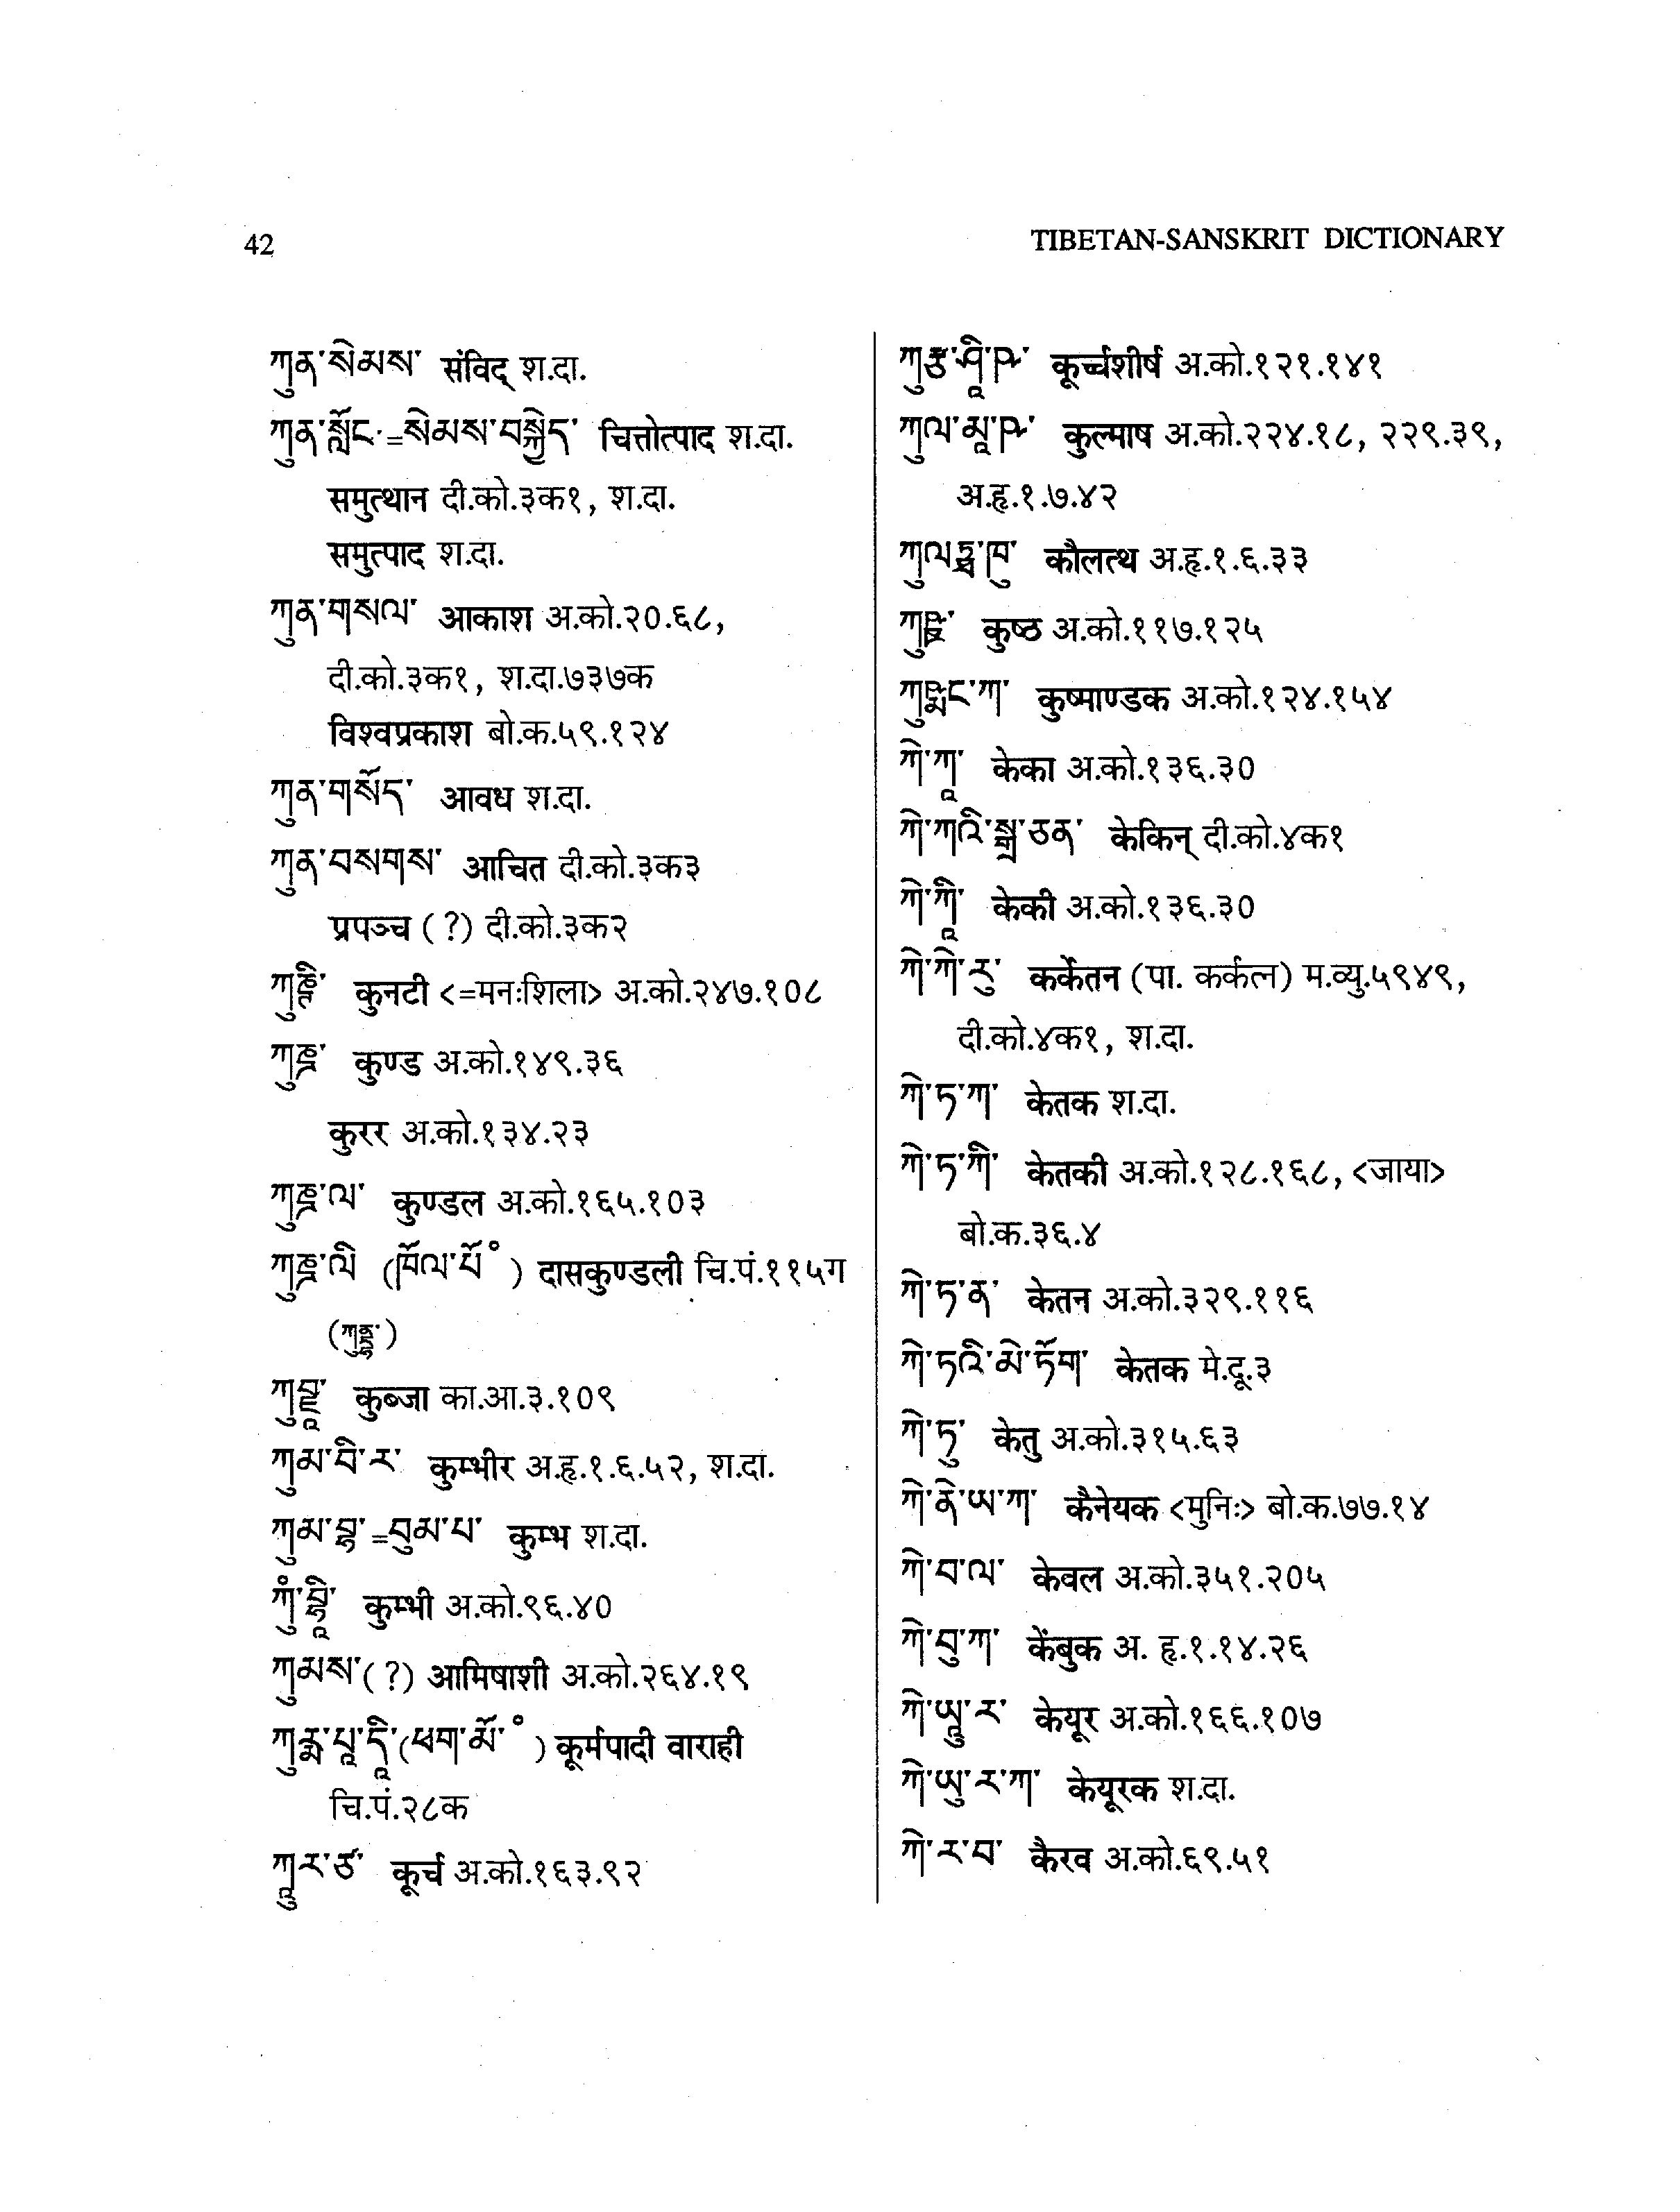 42
TIBETAN-SANSKRIT DICTIONARY
ཀུན་སེམས་ संविद् श.दा.
ཀུན་སློང་=སེམས་བསྐྱེད་ चित्तोत्पाद श.दा.
समुत्थान दी.को.३क१, श.दा.
समुत्पाद श.दा.
ཀུན་གསལ་ आकाश अ.को.२०.६८,
दी.को.३क१, श.दा.७३७क
विश्वप्रकाश बो.क.५९.१२४
ཀུན་གསོད་ आवध श.दा.
ཀུན་བསགས་ आचित दी.को.३क३
प्रपञ्च (?) दी.को.३क२
ཀུནྚི་ कुनटी <=मनःशिला> अ.को.२४७.१०८
ཀུཎྜ་ कुण्ड अ.को.१४९.३६
कुरर अ.को.१३४.२३
ཀུཎྜ་ལ་ कुण्डल अ.को.१६५.१०३
ཀུཎྜ་ལི (ཁོལ་པོ° ) दासकुण्डली चि.पं.११५ग
ཀུབྫཱ་ कुब्जा का.आ.३.१०९
ཀུམ་བི་ར་ कुम्भीर अ.हृ.१.६.५२, श.दा.
ཀུམ་བྷ་=བུམ་པ་ कुम्भ श.दा.
ཀུཾ་བྷཱི་ कुम्भी अ.को.९६.४०
ཀུམས་(?) आमिषाशी अ.को.२६४.१९
ཀུརྨ་པཱ་དཱི་(ཕག་མོ° ) कूर्मपादी वाराही
चि.पं.२८क
ཀཱུར་ཙ་ कूर्च अ.को.१६३.९२
ཀུརྩ་ཤཱི་ཥ་ कूर्च्चशीर्ष अ.को.१२१.१४१
ཀུལ་མཱ་ཥ་ कुल्माष अ.को.२२४.१८, २२९.३९,
अ.हृ.१.७.४२
ཀུལཏྠ་ཁུ་ कौलत्थ अ.हृ.१.६.३३
ཀུཥྛ་ कुष्ठ अ.को.११७.१२५
ཀུཥྨང་ཀ་ कुष्माण्डक अ.को.१२४.१५४
ཀེ་ཀཱ་ केका अ.को.१३६.३०
ཀེ་ཀའི་སྒྲ་ཅན་ केकिन् दी.को.४क१
ཀེ་ཀཱི་ केकी अ.को.१३६.३०
ཀེ་ཀེ་རུ་ कर्केतन (पा. कर्कत्न) म.व्यु.५९४९,
दी.को.४क१, श.दा.
ཀེ་ཏ་ཀ་ केतक श.दा.
ཀེ་ཏ་ཀི་ केतकी अ.को.१२८.१६८, <जाया>
बो.क.३६.४
ཀེ་ཏ་ན་ केतन अ.को.३२९.११६
ཀེ་ཏའི་མེ་ཏོག་ केतक मे.दू.३
ཀེ་ཏུ་ केतु अ.को.३१५.६३
ཀེ་ནེ་ཡ་ཀ་ कैनेयक <मुनिः> बो.क.७७.१४
ཀེ་བ་ལ་ केवल अ.को.३५१.२०५
ཀེ་བུ་ཀ་ केंबुक अ. हृ.१.१४.२६
ཀེ་ཡཱུ་ར་ केयूर अ.को.१६६.१०७
ཀེ་ཡུ་ར་ཀ་ केयूरक श.दा.
ཀེ་ར་བ་ कैरव अ.को.६९.५१